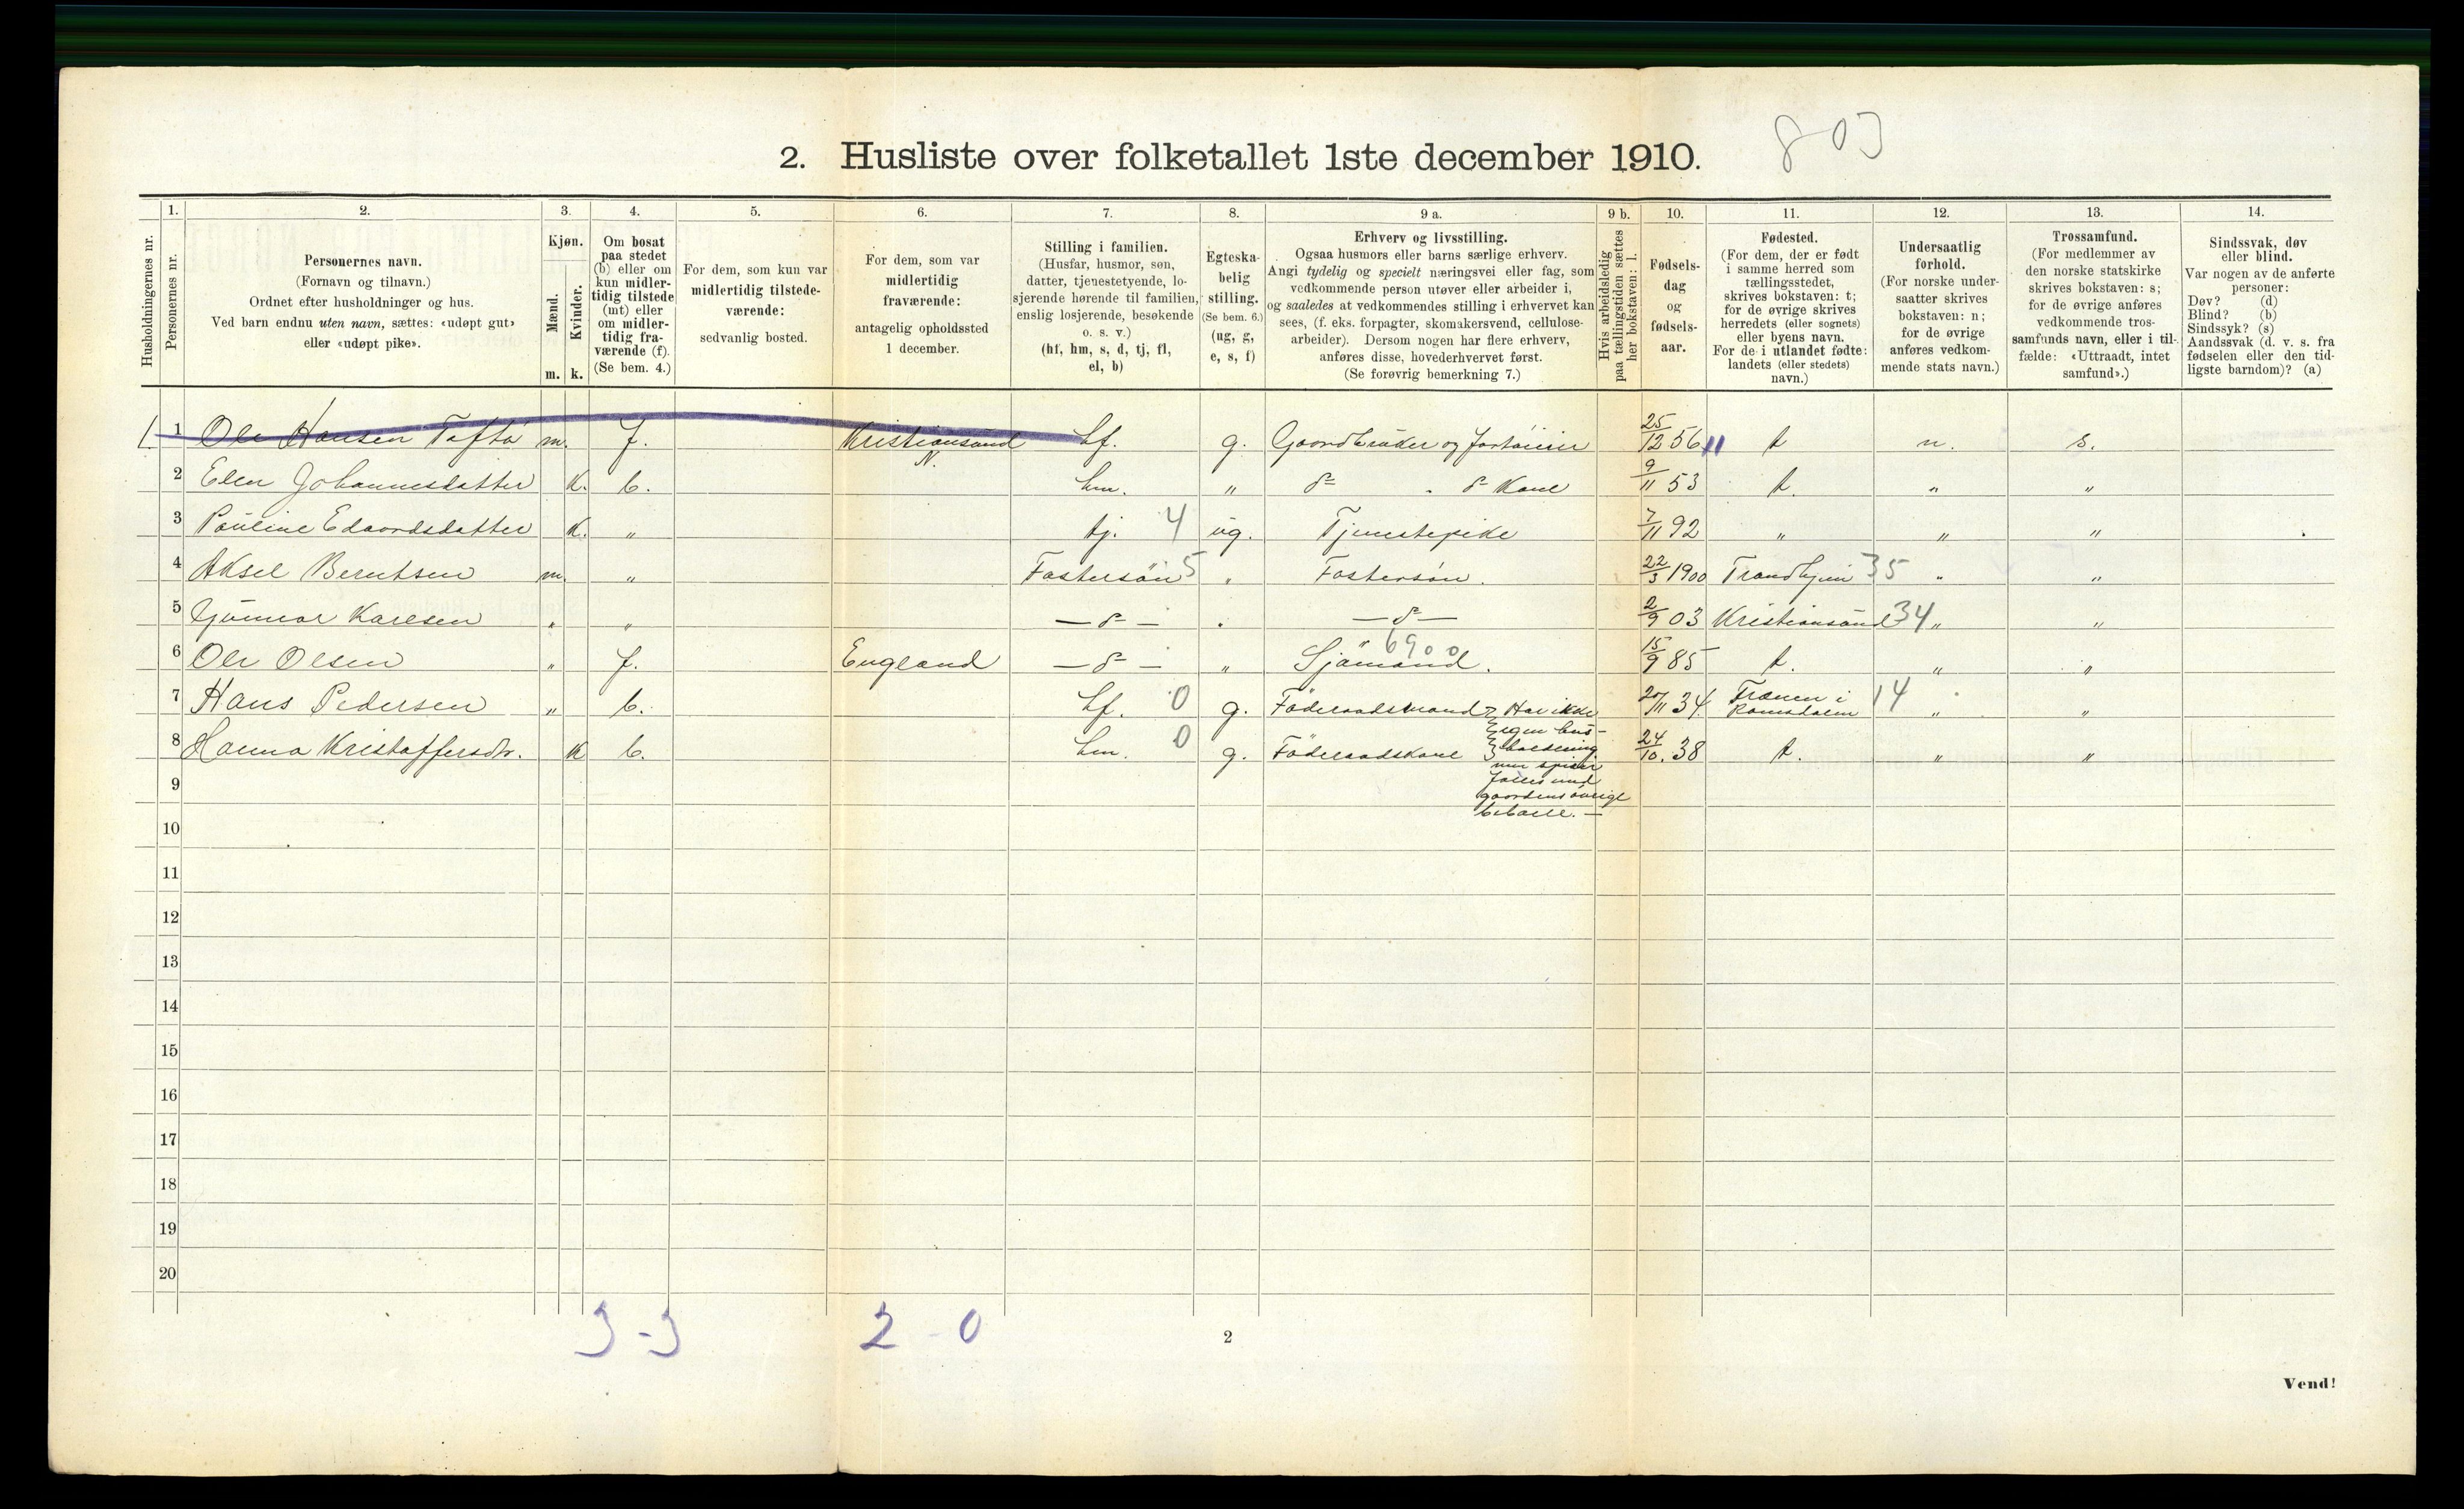 803
2. Husliste over folketallet 1ste december 1910.
Husholdningernes nr.
1.
Personernes nr.
2.
Personernes navn.
(Fornavn og tilnavn.)
Ordnet efter husholdninger og hus.
Ved barn endnu uten navn, sættes: «udøpt gut»
eller «udøpt pike».
3.
Kjøn.
Mænd.
Kvinder.
m. k.
4.
Om bosat
paa stedet
(b) eller om
kun midler-
tidig tilstede
(mt) eller
om midler-
tidig fra-
værende (f).
(Se bem. 4.)
5.
For dem, som kun var
midlertidig tilstede-
værende:
sedvanlig bosted.
6.
For dem, som var
midlertidig
fraværende:
antagelig opholdssted
1 december.
7.
Stilling i familien.
(Husfar, husmor, søn,
datter, tjenestetyende, lo-
sjerende hørende til familien,
enslig losjerende, besøkende
o. s. v.)
(hf, hm, s, d, tj, fl,
el, b)
8.
Egteska-
belig
stilling.
(Se bem. 6.)
(ug, g,
e, s, f)
9 a.
Erhverv og livsstilling.
Ogsaa husmors eller barns særlige erhverv.
Angi tydelig og specielt næringsvei eller fag, som
vedkommende person utøver eller arbeider i,
og saaledes at vedkommendes stilling i erhvervet kan
sees, (f. eks. forpagter, skomakersvend, cellulose-
arbeider). Dersom nogen har flere erhverv,
anføres disse, hovederhvervet først.
(Se forøvrig bemerkning 7.)
9 b.
Hvis arbeidsledig
paa tællingstiden sættes
her bokstaven: l.
10.
Fødsels-
dag
og
fødsels-
aar.
11.
Fødested.
(For dem, der er født
i samme herred som
tællingsstedet,
skrives bokstaven: t;
for de øvrige skrives
herredets (eller sognets)
eller byens navn.
For de i utlandet fødte:
landets (eller stedets)
navn.)
12.
Undersaatlig
forhold.
(For norske under-
saatter skrives
bokstaven: n;
for de øvrige
anføres vedkom-
mende stats navn.)
13.
Trossamfund.
(For medlemmer av
den norske statskirke
skrives bokstaven: s;
for de øvrige anføres
vedkommende tros-
samfunds navn, eller i til-
fælde: «Uttraadt, intet
samfund».)
14.
Sindssvak, døv
eller blind.
Var nogen av de anførte
personer:
Døv? (d)
Blind? (b)
Sindssyk? (s)
Aandssvak (d. v. s. fra
fødselen eller den tid-
ligste barndom)? (a)
1 1 Ole Hansen Tofta m. f. Kristiansund N. hf. g. Gaardbruker og 25/12 56 t n. s.
2 Elen Johannesdatter K. b. hm. " d= d= Kone 9/11 53 t. " "
3 Pauline Edvardsdatter K. " tj. 4 ug. Tjenestepike 7/11 92 " " "
4 Aksel Berntsen m. " Fostersön 5 " Fostersön. 22/3 1900 Trondhjem 35 " "
5 Gunnar Karlsen " " —d=— " —d=— 2/9 03 Kristiansund 34 " "
6 Ole Olsen " f. England —d=— " Sjömand. 6900 15/9 85 t. " "
7 Hans Pedersen " b. hf. 0 g. Föderaadsmand Har ikke 20/11 34 Frænen i Romsdalen 14 " "
8 Hanna Kristoffersdtr. K b. hm. 0 g. Föderaadskone 24/10. 38 t. " "
Egen hus-
holdning
men spiser
fælles med
gaardens övrige
beboere. —
9
10
11
12
13
14
15
16
17
18
19
20
3-3 2-0
2
Vend!